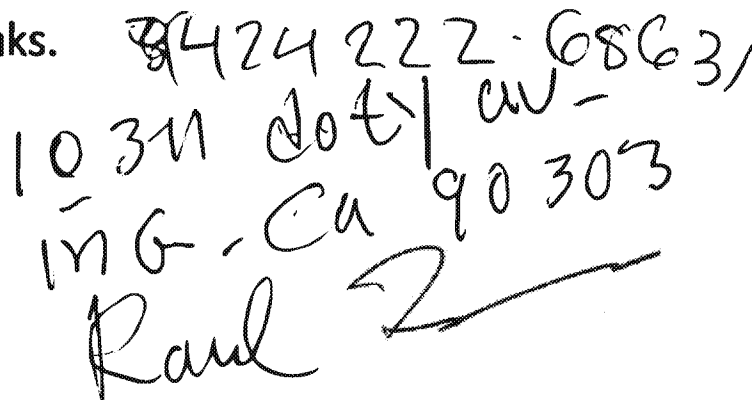 nks. 424 222.6863/
doty av-
ing-Ca 90303
Raul